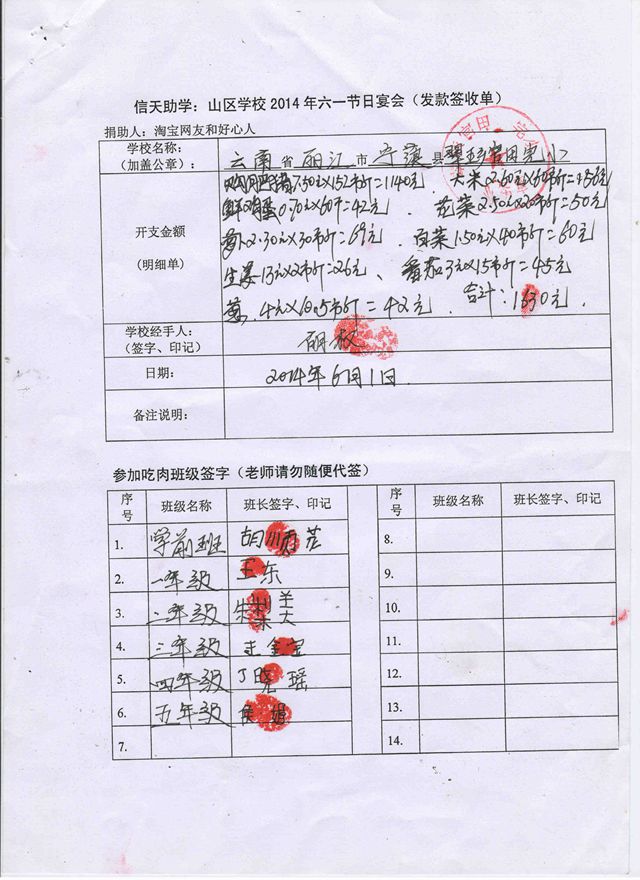 信天助学：山区学校 2014 年六一节日宴会（发款签收单）
捐助人：淘宝网友和好心人
学校名称：
（加盖公章）：
云南省丽江市宁蒗县
7.50元X152市斤=1140元 大米2.60元X60市斤=156元
0.70元X60个=42元 花菜2.50元X20市斤=50元
开支金额
（明细单）
2.30元X30市斤=69元 白菜1.50元X40市斤=60元
生姜13元X2市斤=26元、番茄3元X15市斤=45元
葱 4元X10.5市斤=42元 合计：1630元
学校经手人：
（签字、印记）
丽
日期： 2014年6月1日
备注说明：
参加吃肉班级签字（老师请勿随便代签）
序号 班级名称 班长签字、印记 序号 班级名称 班长签字、印记
1. 学前班 胡 8.
2. 一年级 王东 9.
3. 二年级 10.
4. 三年级 王金宝 11.
5. 四年级 丁晓瑶 12.
6. 五年级 娟 13.
7. 14.